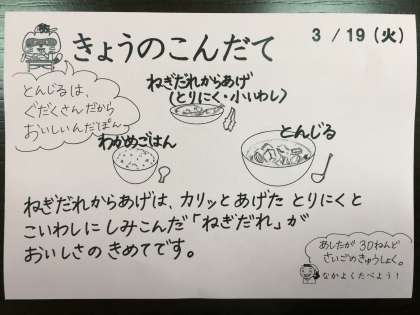 きょうのこんだて
3/19(火)
とんじるは、
ぐだくさんだから
おいしいんだぽん
ねぎだれからあげ
(とりにく・小いわし)
わかめごはん
とんじる
ねぎだれからあげは、カリッとあげた とりにくと
こいわしに しみこんだ「ねぎだれ」が
おいしさの きめてです。
あしたが 30ねんど
さいごのきゅうしょく。
なかよくたべよう!